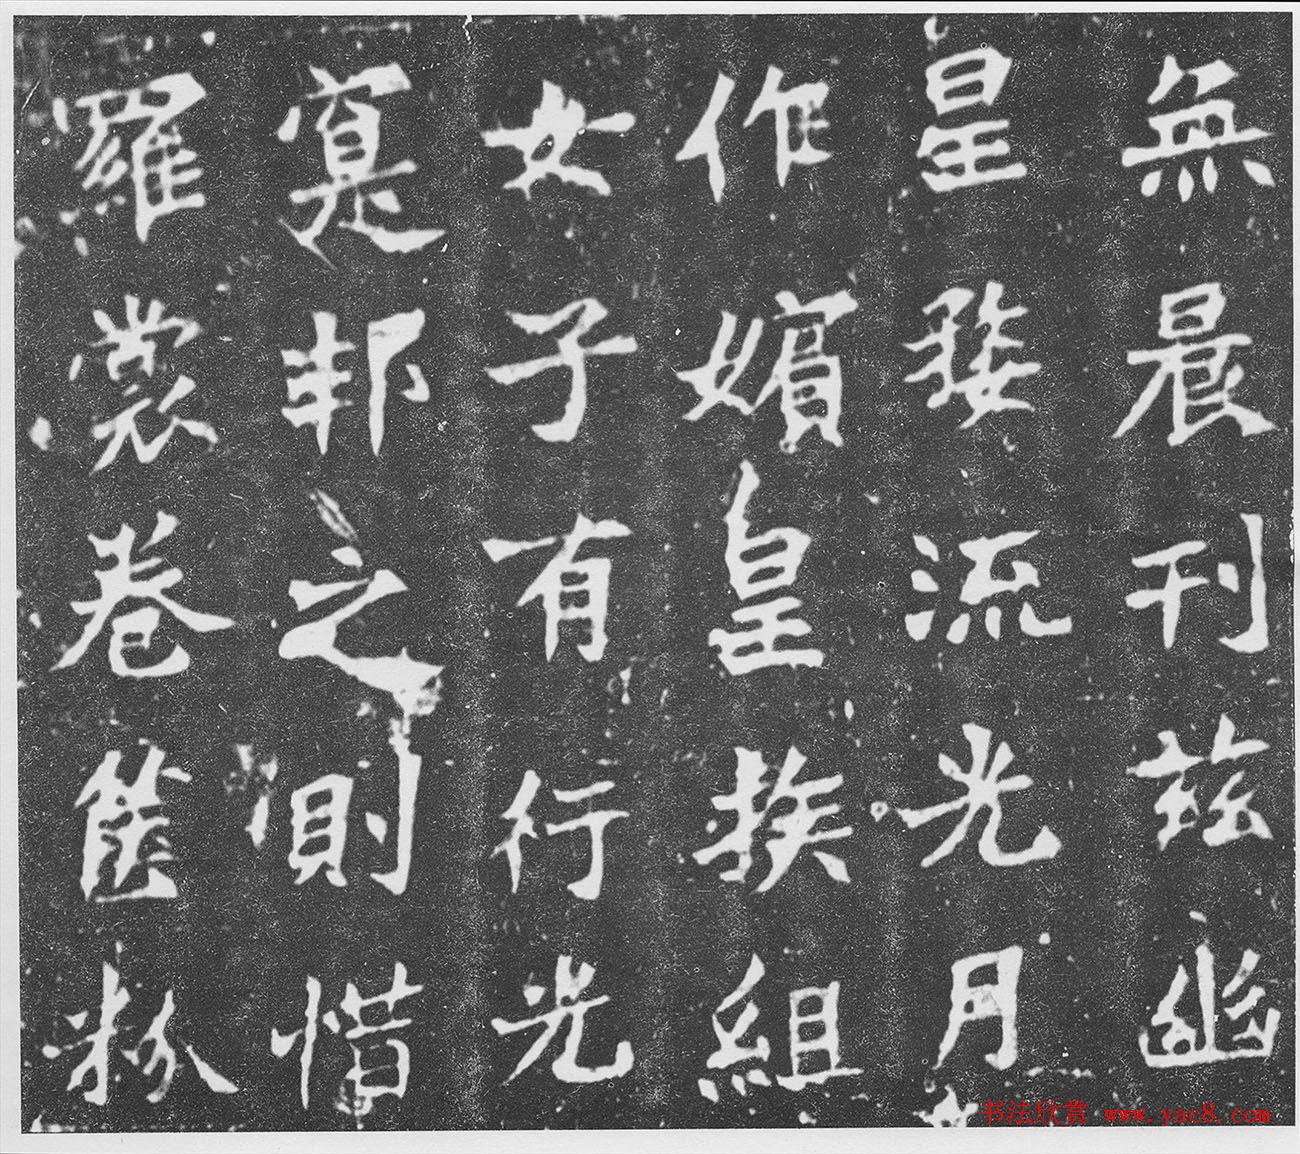 無晨刊兹幽
星婺流光月
作嬪皇族組
女子有行光
寔邦之則惜
羅裳卷篋粉
书法欣赏 www.yac8.com